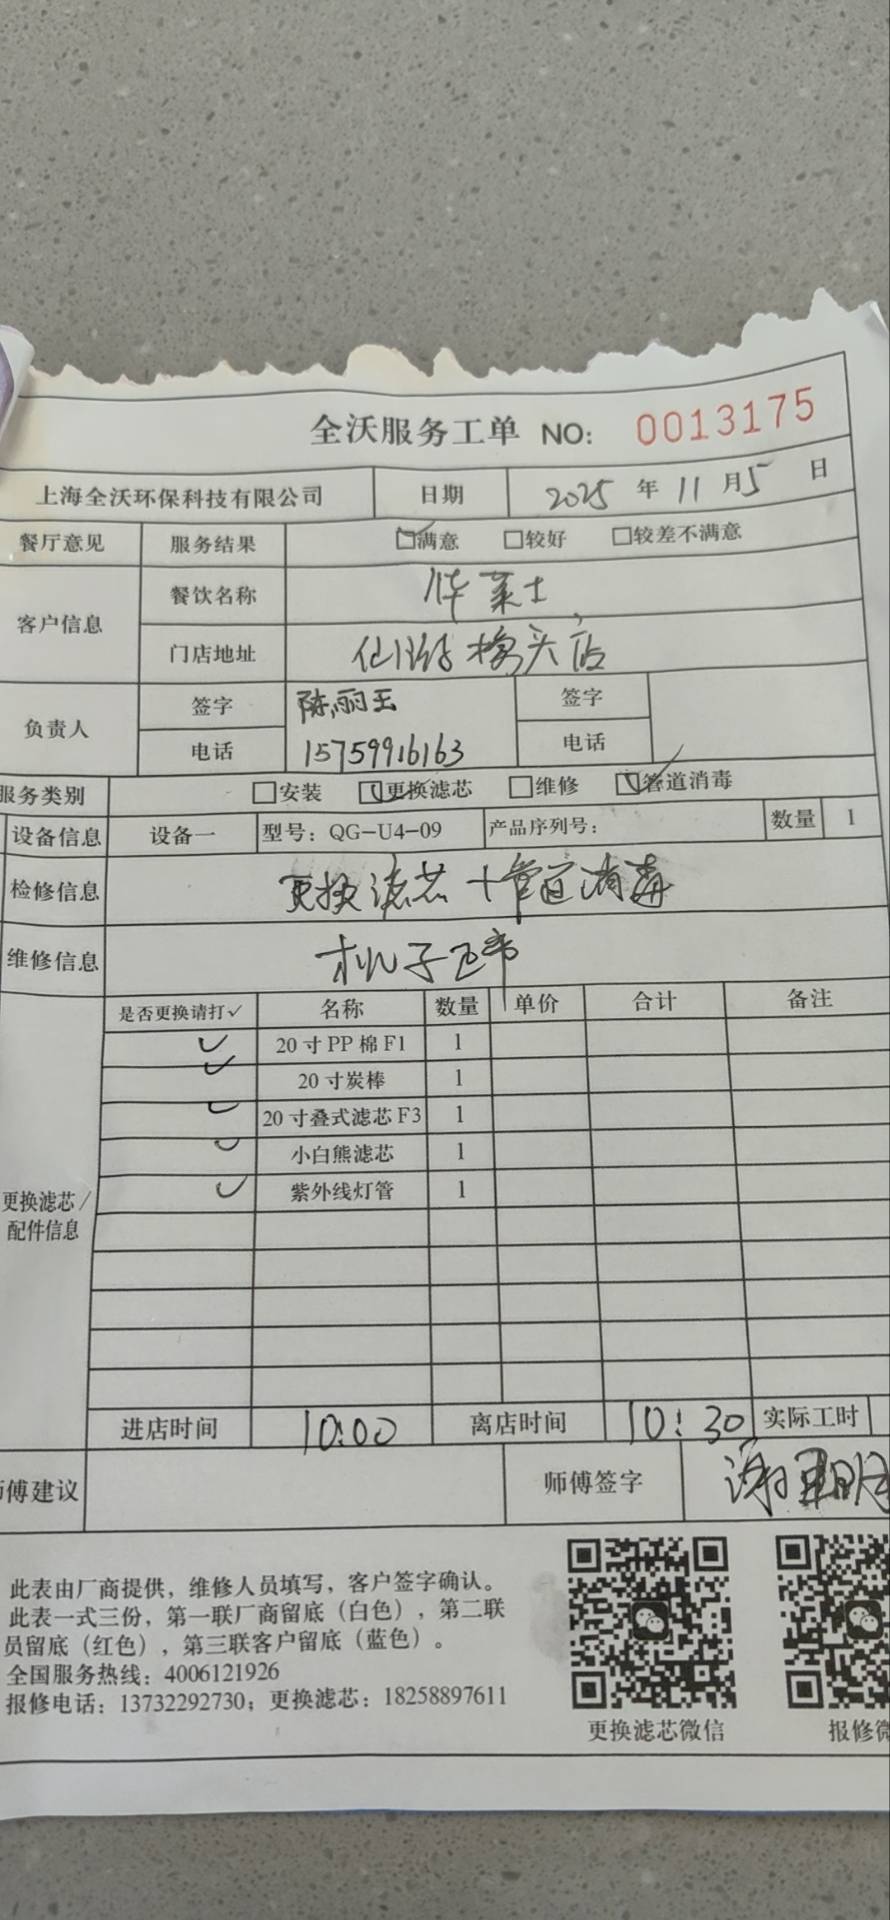 全沃服务工单 NO: 0013175
上海全沃环保科技有限公司 日期 2025 年 11 月 5 日
餐厅意见 服务结果 ☑满意 □较好 □较差不满意
客户信息 餐饮名称 华莱士
门店地址 仙游榜头店
负责人 签字 陈丽玉 签字
电话 15759916163 电话
服务类别 □安装 ☑更换滤芯 □维修 ☑管道消毒
设备信息 设备一 型号：QG-U4-09 产品序列号： 数量 1
检修信息 更换滤芯+管道消毒
维修信息 机子正常
是否更换请打✓ 名称 数量 单价 合计 备注
✓ 20寸PP棉F1 1
✓ 20寸炭棒 1
✓ 20寸叠式滤芯F3 1
✓ 小白熊滤芯 1
✓ 紫外线灯管 1
更换滤芯/
配件信息
进店时间 10:00 离店时间 10:30 实际工时
傅建议 师傅签字 谢
此表由厂商提供，维修人员填写，客户签字确认。
此表一式三份，第一联厂商留底（白色），第二联
员留底（红色），第三联客户留底（蓝色）。
全国服务热线：4006121926
报修电话：13732292730；更换滤芯：18258897611
更换滤芯微信 报修微